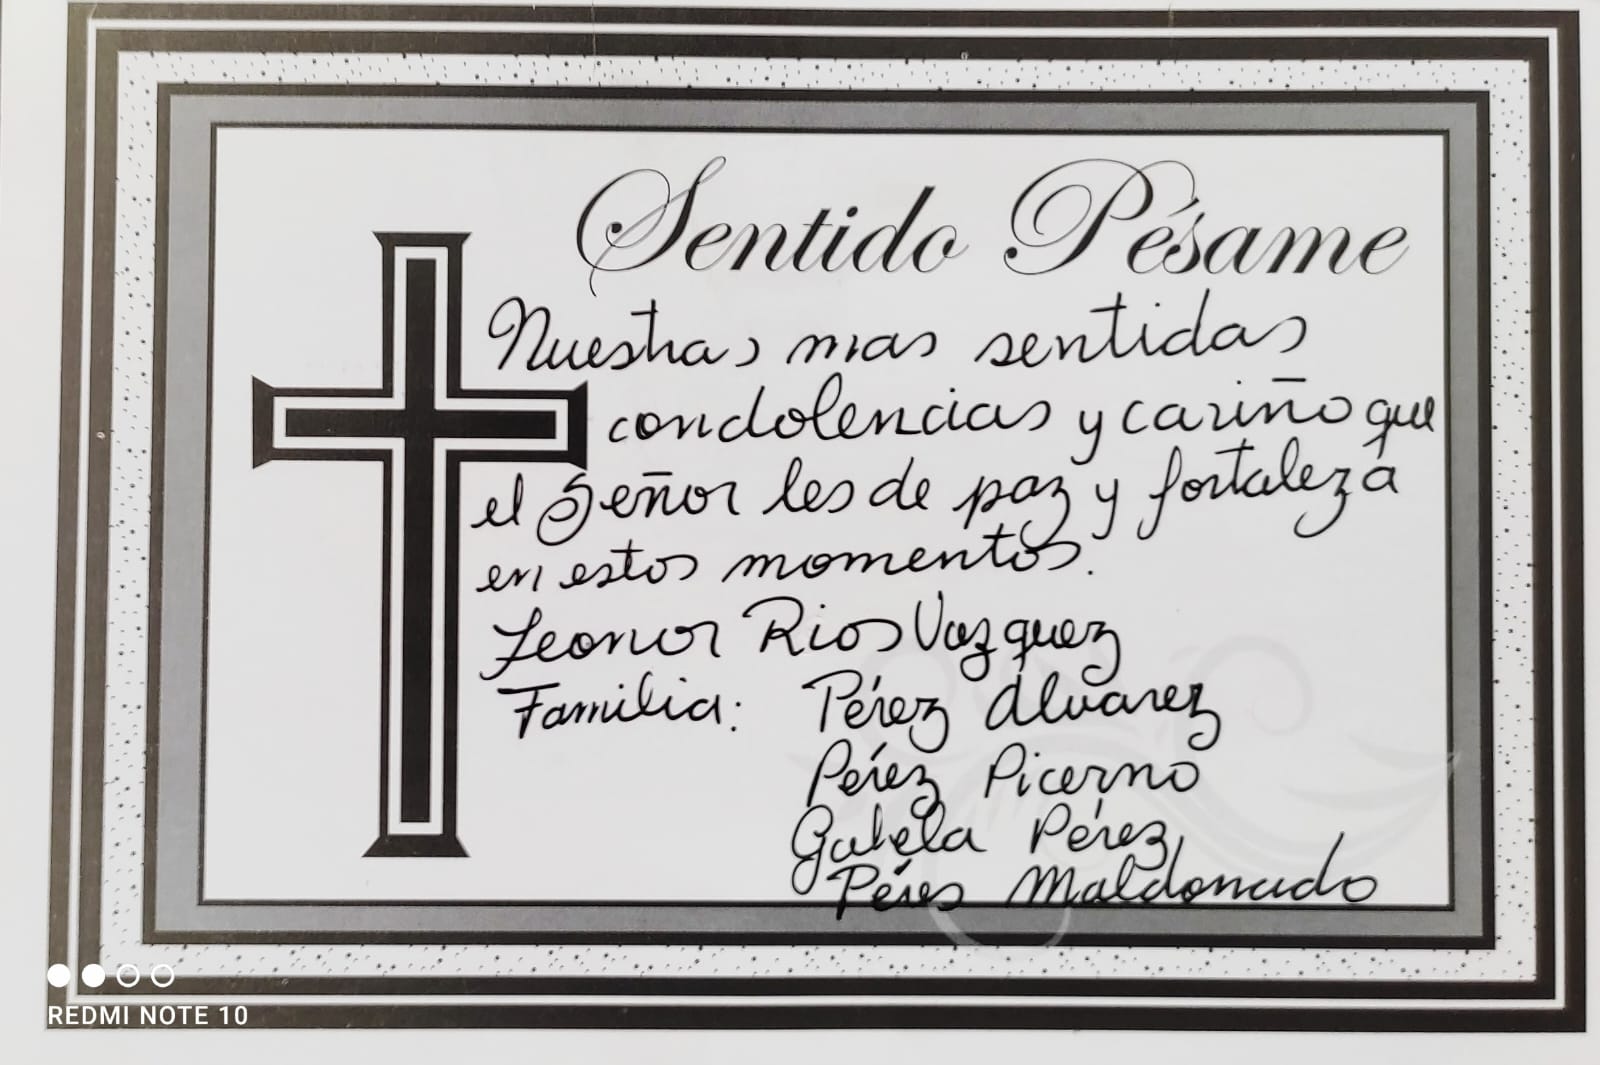 Sentido Pésame
Nuestras mas sentidas
condolencias y cariño que
el Señor les de paz y fortaleza
en estos momentos.
Leonor Rios Vazquez
Familia: Pérez Álvarez
Pérez Picerno
Gabela Pérez
Pérez Maldonado
REDMI NOTE 10